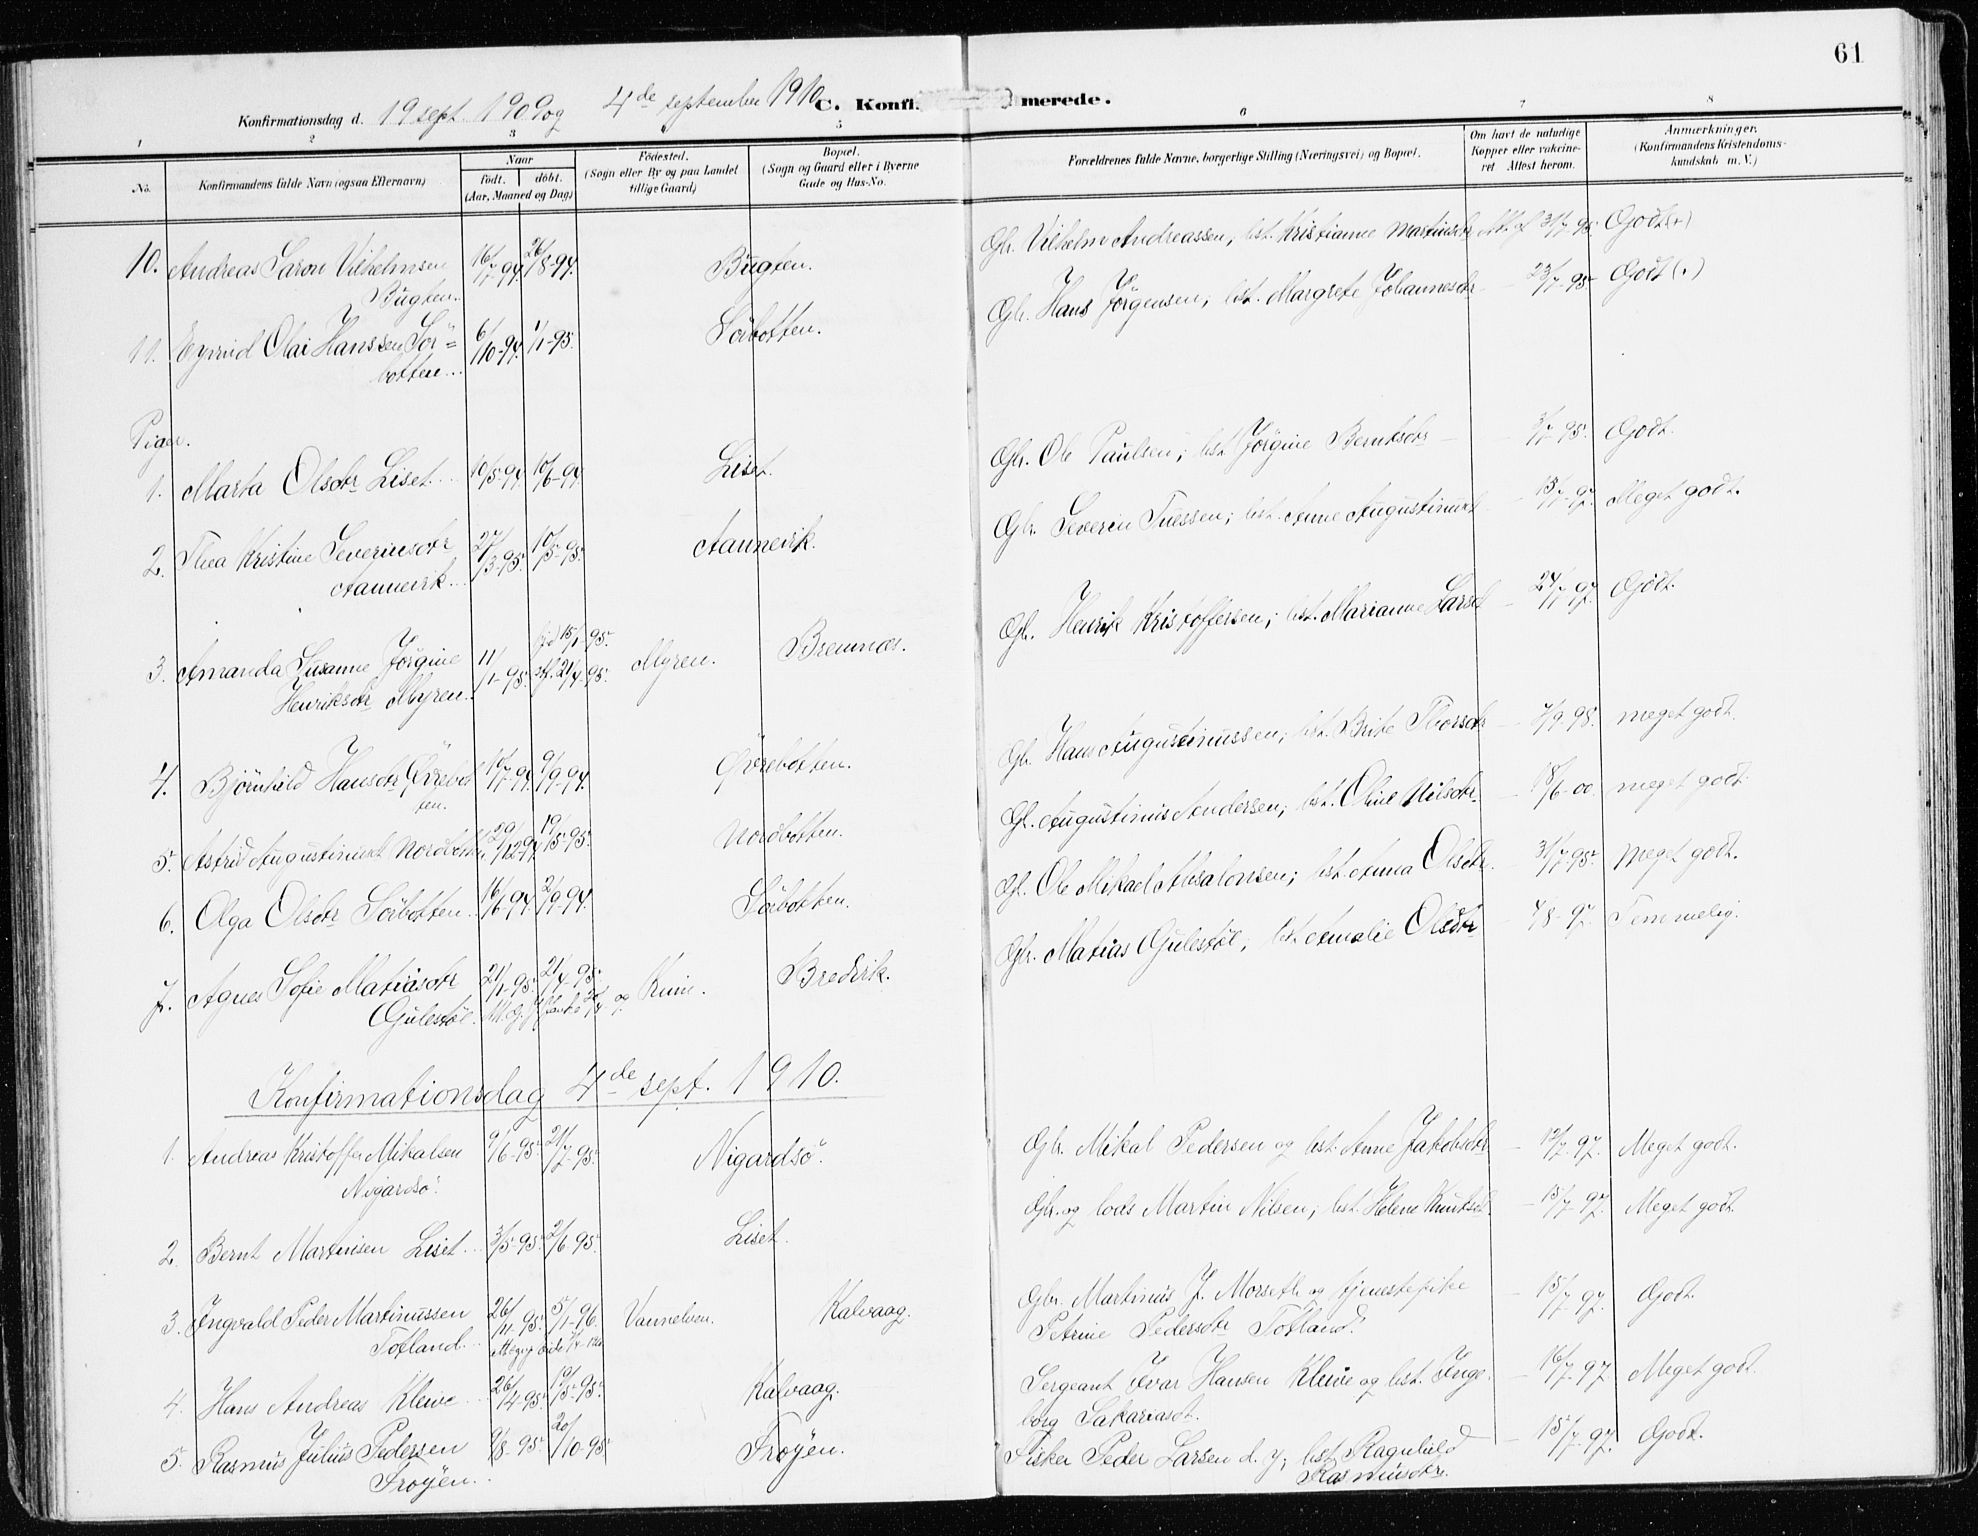 61
Konfirmationsdag d. 19 sept. 1909 og 4de september 1910 C. Konfi merede.
1 2 3 5 6 7 8
No. Konfirmandens fulde Navn (ogsaa Efternavn)
Naar
født. døbt.
(Aar, Maaned og Dag)
Fødested.
(Sogn eller By og paa Landet
tillige Gaard)
Bopæl.
(Sogn og Gaard eller i Byerne
Gade og Hus-No.
Forældrenes fulde Navne, borgerlige Stilling (Næringsvei) og Bopæl.
Om havt de naturlige
Kopper eller vakcine-
ret Attest herom.
Anmærkninger.
(Konfirmandens Kristendoms-
kundskab m. V.)
10. Andreas Saron Vilhelmsen 16/7-94. 26/8-94. Bugten. Gbr. Vilhelm Andreassen; hst. Kristianne Martinsdtr. 31/7-95. Godt (+)
Bugten.
11. Eyvind Olai Hanssen Sör= 6/10-94. 1/1-95. Sörbotten. Gbr. Hans Jörgensen; hst. Margrete Johannesdtr. 23/7-95. Godt (+)
botten.
Piger.
1. Marta Olsdtr Liset. 10/5-94. 10/6-94. Liset. Gbr. Ole Paulsen; hst. Jörgine Berntsdtr - 3/7-95. Godt.
2. Thea Kristine Severinsdtr 27/3-95. 10/5-95. Aannevik. Gbr. Severin Tuessen; hst. Anne Augustinusd - 13/7-97. Meget godt.
Aannevik.
3. Amanda Susanne Jörgine 11/1-95. hjd 15/1-95. Myren. Bremnes. Gbr. Henrik Kristoffersen; hst. Marianne Larsd - 24/7-97. Godt.
Henriksdtr Myren. stf. 21/4-95.
4. Bjørnhild Hansdtr Öyrebot 10/7-94. 9/9-94. Öyrebotten. Gbr. Hans Augustinussen; hst. Brite Thorsdtr - 3/9-98. meget godt.
ten.
5. Astrid Augustinusd Nordbotten 29/12-94. 19/5-95. Nordbotten. Gbr. Augustinus Andersen; hst. Oline Nilsdtr. - 18/6-00. meget godt
6. Olga Olsdtr Sörbotten. 16/6-94. 2/9-94. Sörbotten. Gbr. Ole Mikael Absalonsen; hst. Anna Olsdtr. - 31/7-95 Meget godt.
7. Agnes Sofie Matiasdtr 21/1-95. 21/4-95. Kinn. Bredvik. Gbr. Matias Gulestöl; hst. Amalie Olsdtr - 4/8-97. Temmelig.
Gulestöl.
Konfirmationsdag 4de sept. 1910.
1. Andreas Kristoffer Mikalsen 9/6-95. 21/7-95. Nigardsö. Gbr. Mikal Pedersen og hst. Anne Jakobsdtr - 12/7-97. Meget godt.
Nigardsö.
2. Bernt Martinsen Liset. 3/5-95. 2/6-95. Liset. Gbr. og lods Martin Nilsen; hst. Helene Knutsd. - 15/7-97. Meget godt.
3. Ingvald Peder Martinussen 26/11-95. 5/1-96. Vannelven. Kalvaag. Gbr. Martinus J. Morseth og tjenestepike - 15/7-97. Godt.
Totland. Petrine Pedersdtr Totland.
4. Hans Andreas Kleive 26/4-95. 19/5-95. Kalvaag. Sergeant Ivar Hansen Kleive og hst. Inge- - 16/7-97 Meget godt.
borg Sakariasd.
5. Rasmus Julius Pedersen 9/8-95. 20/10-95. Fröyen. Fisker Peder Larsen d. y; hst. Ragnhild - 15/7-97. Godt.
Fröyen. Rasmusdtr.